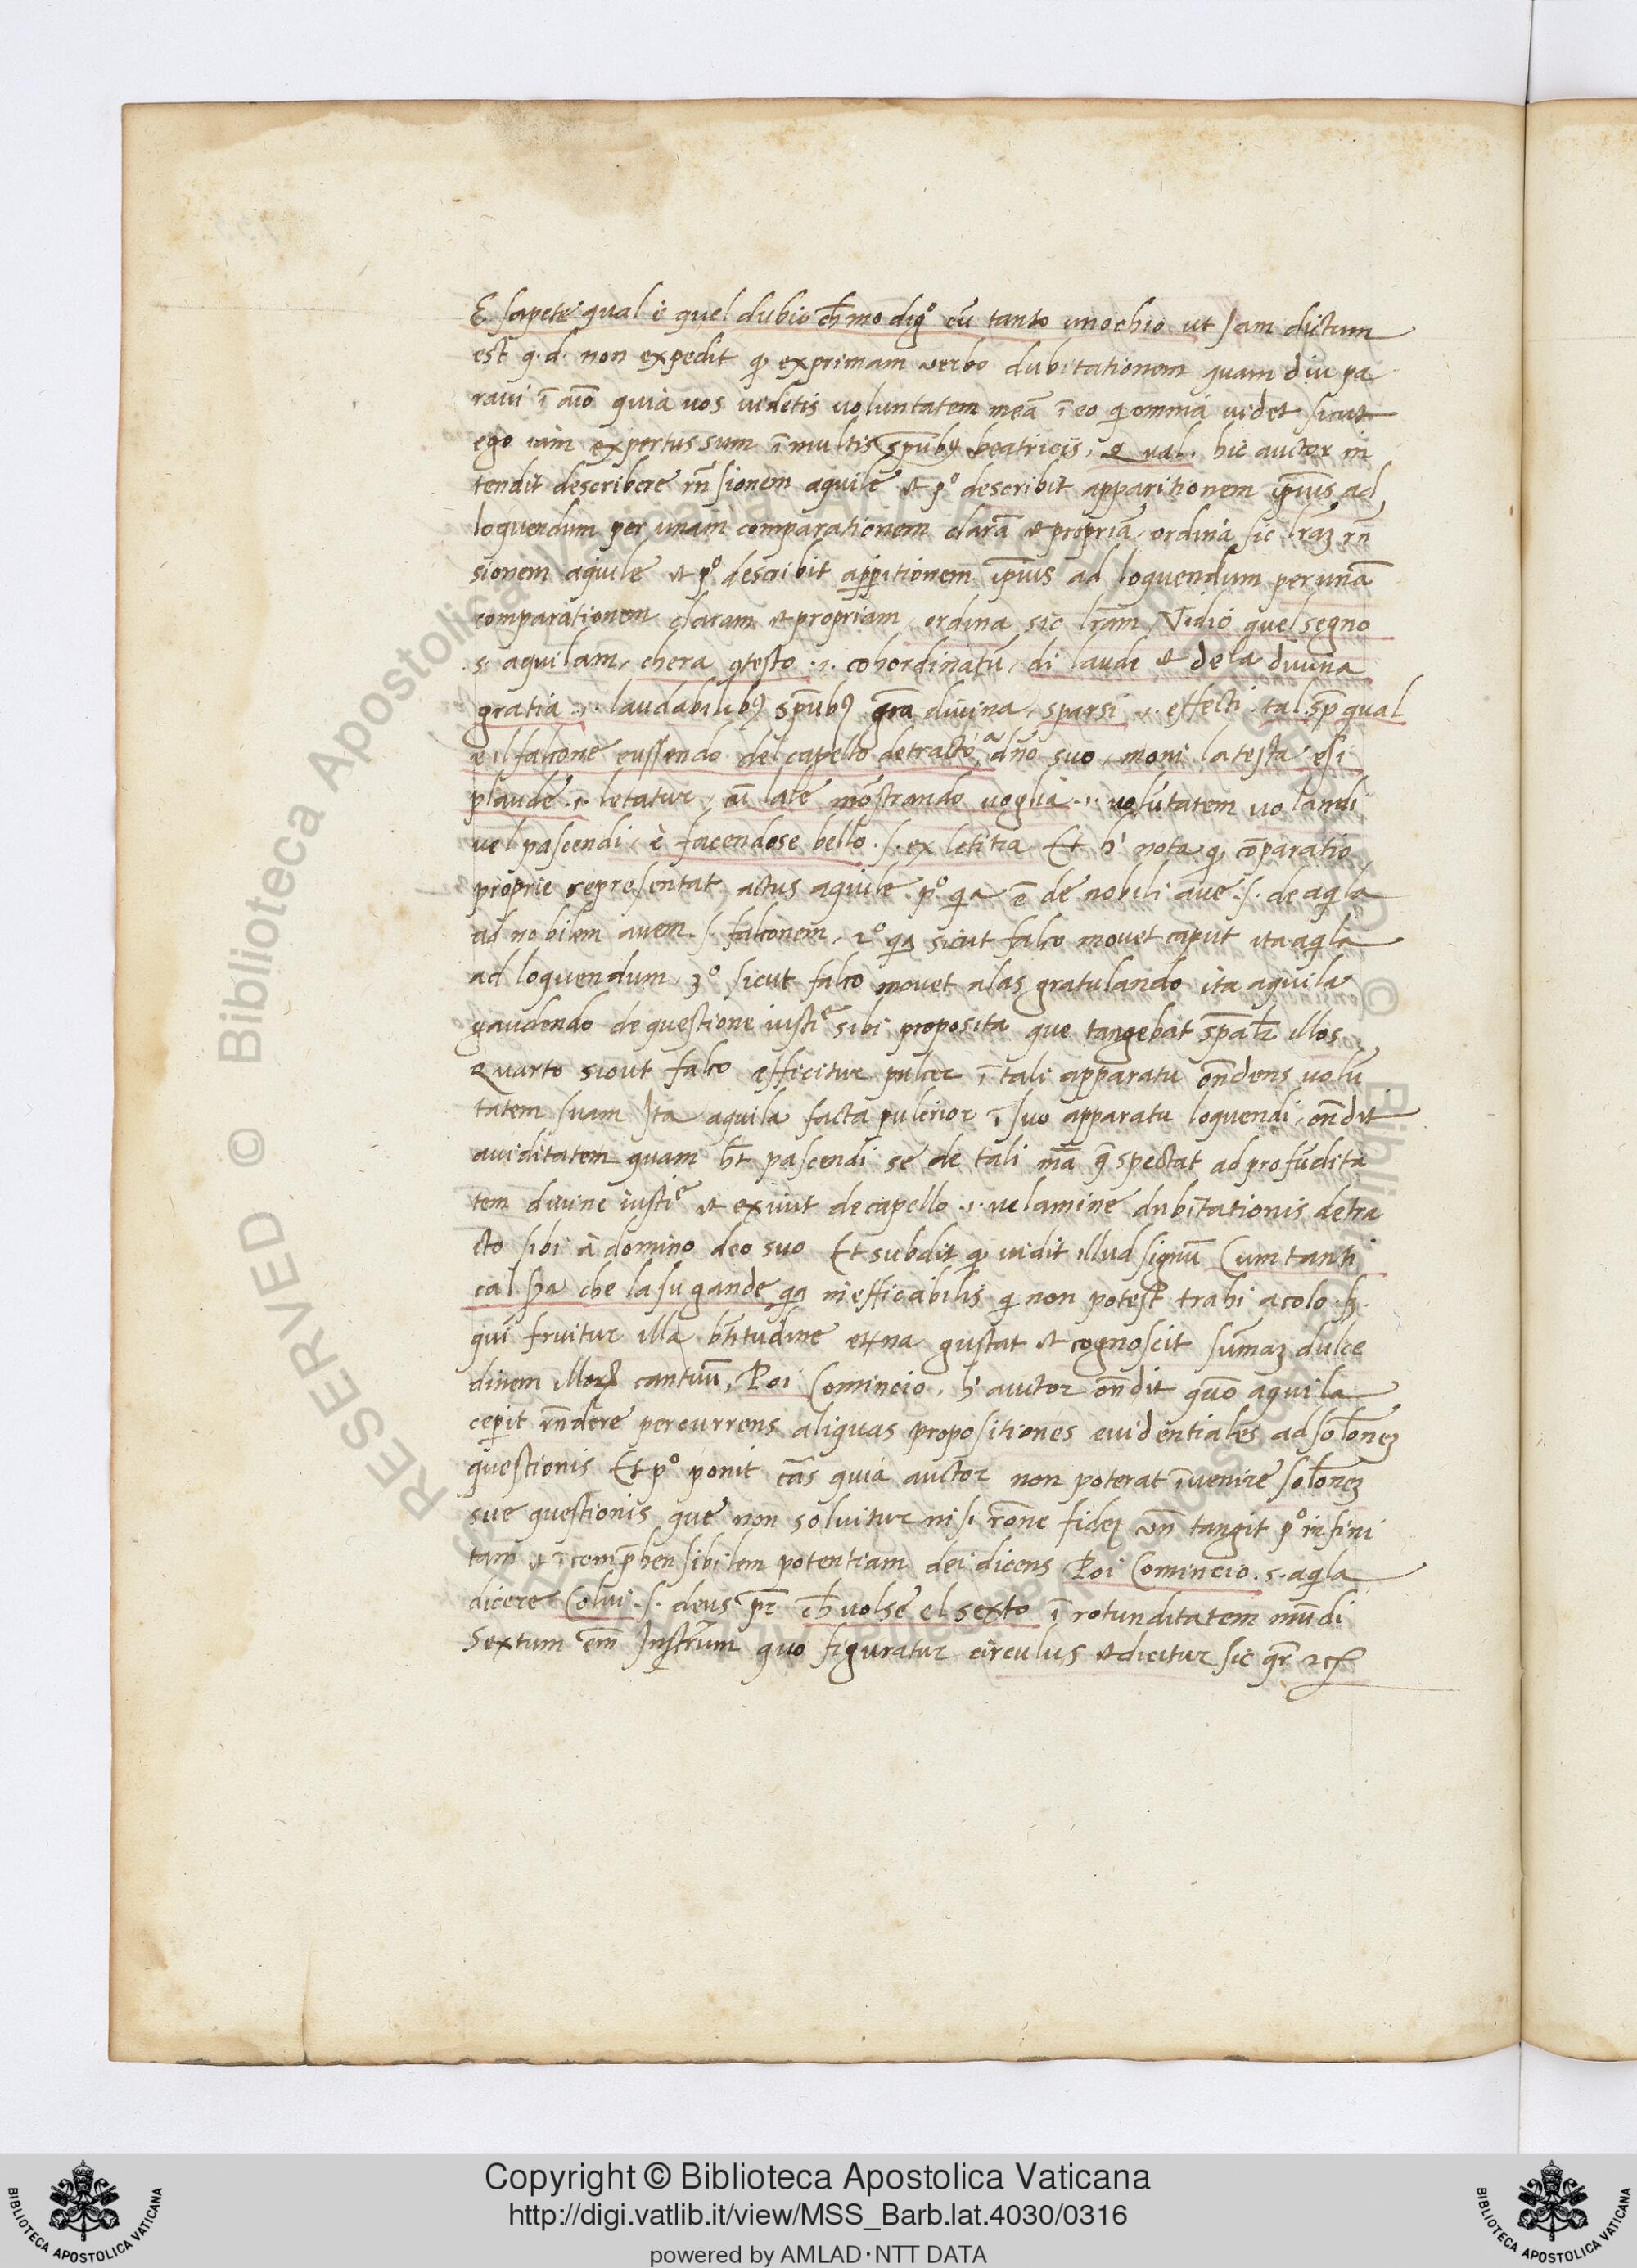 E sapete qual è quel dubio ch̄ mo dig° cū tanto unochio ut Jam dictum
est q.d. non expedit ꝙ exprimam verbo dubitationem quam diu pa
ravi ī aīo quia vos videtis voluntatem meā ī eo q̄ omnia videt sicut
ego iam expertus sum ī multis sp̄ubꝰ beatricis, Qual, hic auctor in
tendit describere rn̄sionem aquile et p° describit apparitionem ip̄ius ad
loquendum per unam comparationem clarā et propriā, ordina sic lr̄aꝫ rn̄
sionem aquile et p° describit apparitionem ip̄ius ad loquendum per unā
comparationem claram et propriam, ordina sic lr̄am, Vidio quel segno
.s. aquilam, chera ꝯtesto .i. cohordinatū, di laude et dela divina
gratia .i. laudabilibꝰ sp̄ubꝰ gr̄a divina, sparsi .i. effecti, tal sp̄ qual
e il falcone eussendo del capello detracto a dn̄o suo, movi la testa e si
plaude .i. letatur, cū lale mostrando voglia .i. volūtatem volandi
vel pascendi, è facendose bello .s. ex letitia Et h' nota ꝙ cōparatio
proprie representat actus aquile p° qꝛ ē de nobili ave .s. de aqila
ad nobilem avem .s. falconem, 2° qꝛ sicut falco movet caput ita aqila
ad loquendum, 3° sicut falco movet alas gratulando ita aquila
gaudendo de questione iustiᵉ sibi proposita que tangebat sp̄alr illos
Quarto sicut falco efficitur pulcer ī tali apparatu on̄dens volū
tatem suam Ita aquila facta pulcrior ī suo apparatu loquendi, on̄dit
aviditatem quam ht̄ pascendi se de tali mā q̄ spectat ad profūdita
tem divine iustiᵉ et exivit de capello .i. velamine dubitationis detra
cto sibi à domino deo suo Et subdit ꝙ vidit illud signū Cum tanti
cal che lasu gande qꝛ inefficabilis q̄ non potest trahi
qui fruitur illa bt̄itudine et̄na gustat et cognoscit sūmaꝫ dulce
dinem illoꝝ cantuū, Poi Comincio, h' auctor on̄dit quō aquila
cepit rn̄dere percurrens aliquas propositiones evidentiales ad sol̄oneꝫ
questionis Et p° ponit cās quia auctor non poterat īvenire sol̄oneꝫ
sue questionis que non solvitur nisi rōne fidei vn̄ tangit p° infini
tam et īcomp̄hensibilem potentiam dei dicens Poi Comincio .s. aqila
dicere Colui .s. deus pr̄ ch̄ volse el sexto ī rotunditatem mūdi
Sextum em̄ Instrm̄ quo figuratur circulus et dicitur sic qr̄